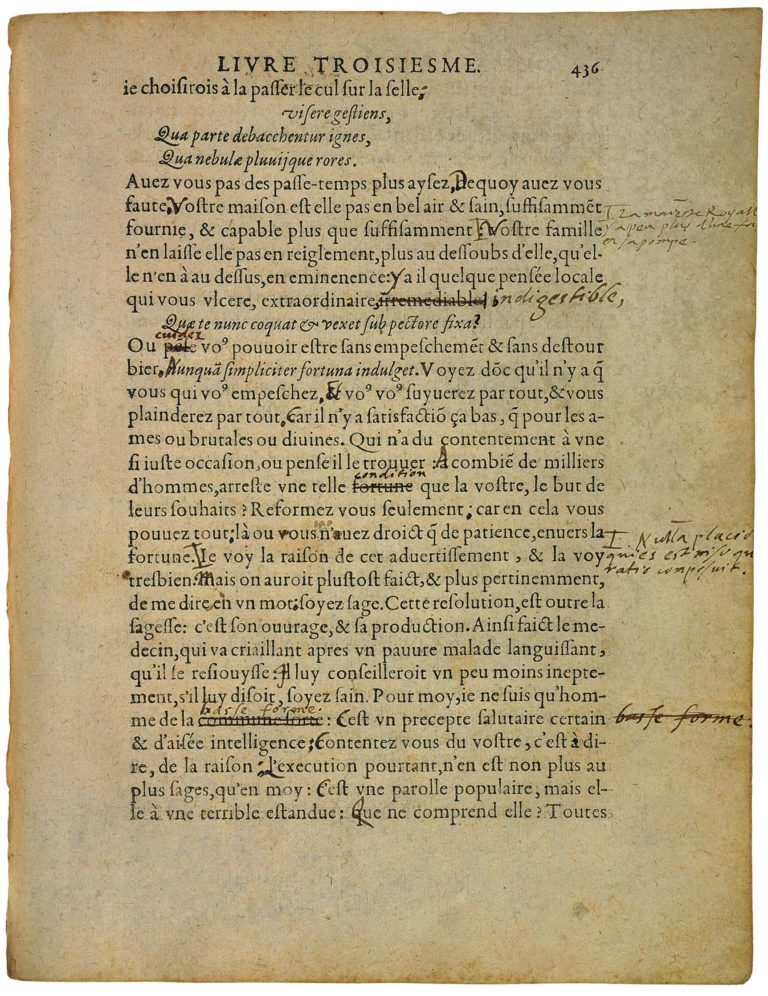 LIVRE TROISIESME. 436
ie choisirois à la passer le cul sur la selle,
visere gestiens,
Qua parte debacchentur ignes,
Qua nebulæ pluuijque rores.
Auez vous pas des passe-temps plus aysez, Dequoy auez vous
faute, Vostre maison est elle pas en bel air & sain, suffisammēt
fournie, & capable plus que suffisamment Vostre famille
n'en laisse elle pas en reiglement, plus au dessoubs d'elle, qu'el-
le n'en à au dessus, en eminenence: y a il quelque pensée locale
qui vous vlcere, extraordinaire, irremediable indigestible,
Quæ te nunc coquat & vexet sub pectore fixa?
cuider
Ou vo⁹ pouuoir estre sans empeschemēt & sans destour
bier, Nunquā simpliciter fortuna indulget. Voyez dōc qu'il n'y a q̄
vous qui vo⁹ empeschez, & vo⁹ vo⁹ suyuerez par tout, & vous
plainderez par tout, Car il n'y a satisfactiō ça bas, q̄ pour les a-
mes ou brutales ou diuines. Qui n'a du contentement à vne
si iuste occasion, ou pense il le trouuer: A combiē de milliers
condition
d'hommes, arreste vne telle fortune que la vostre, le but de
leurs souhaits? Reformez vous seulement; car en cela vous
pouuez tout: là ou vous n'auez droict q̄ de patience, enuers la
fortune. Ie voy la raison de cet aduertissement, & la voy
Nulla placid
quies est nisi qu
ratio composuit.
tresbien. Mais on auroit plustost faict, & plus pertinemment,
de me dire en vn mot: soyez sage. Cette resolution, est outre la
sagesse: c'est son ouurage, & sa production. Ainsi faict le me-
decin, qui va criaillant apres vn pauure malade languissant,
qu'il se resiouysse: Il luy conseilleroit vn peu moins inepte-
ment, s'il luy disoit, soyez sain. Pour moy, ie ne suis qu'hom-
basse forme.
me de la commune sorte: C'est vn precepte salutaire certain basse forme.
& d'aisée intelligence; Contentez vous du vostre, c'est à di-
re, de la raison: L'execution pourtant, n'en est non plus au
plus sages, qu'en moy: C'est vne parolle populaire, mais el-
le à vne terrible estandue: Que ne comprend elle? Toutes